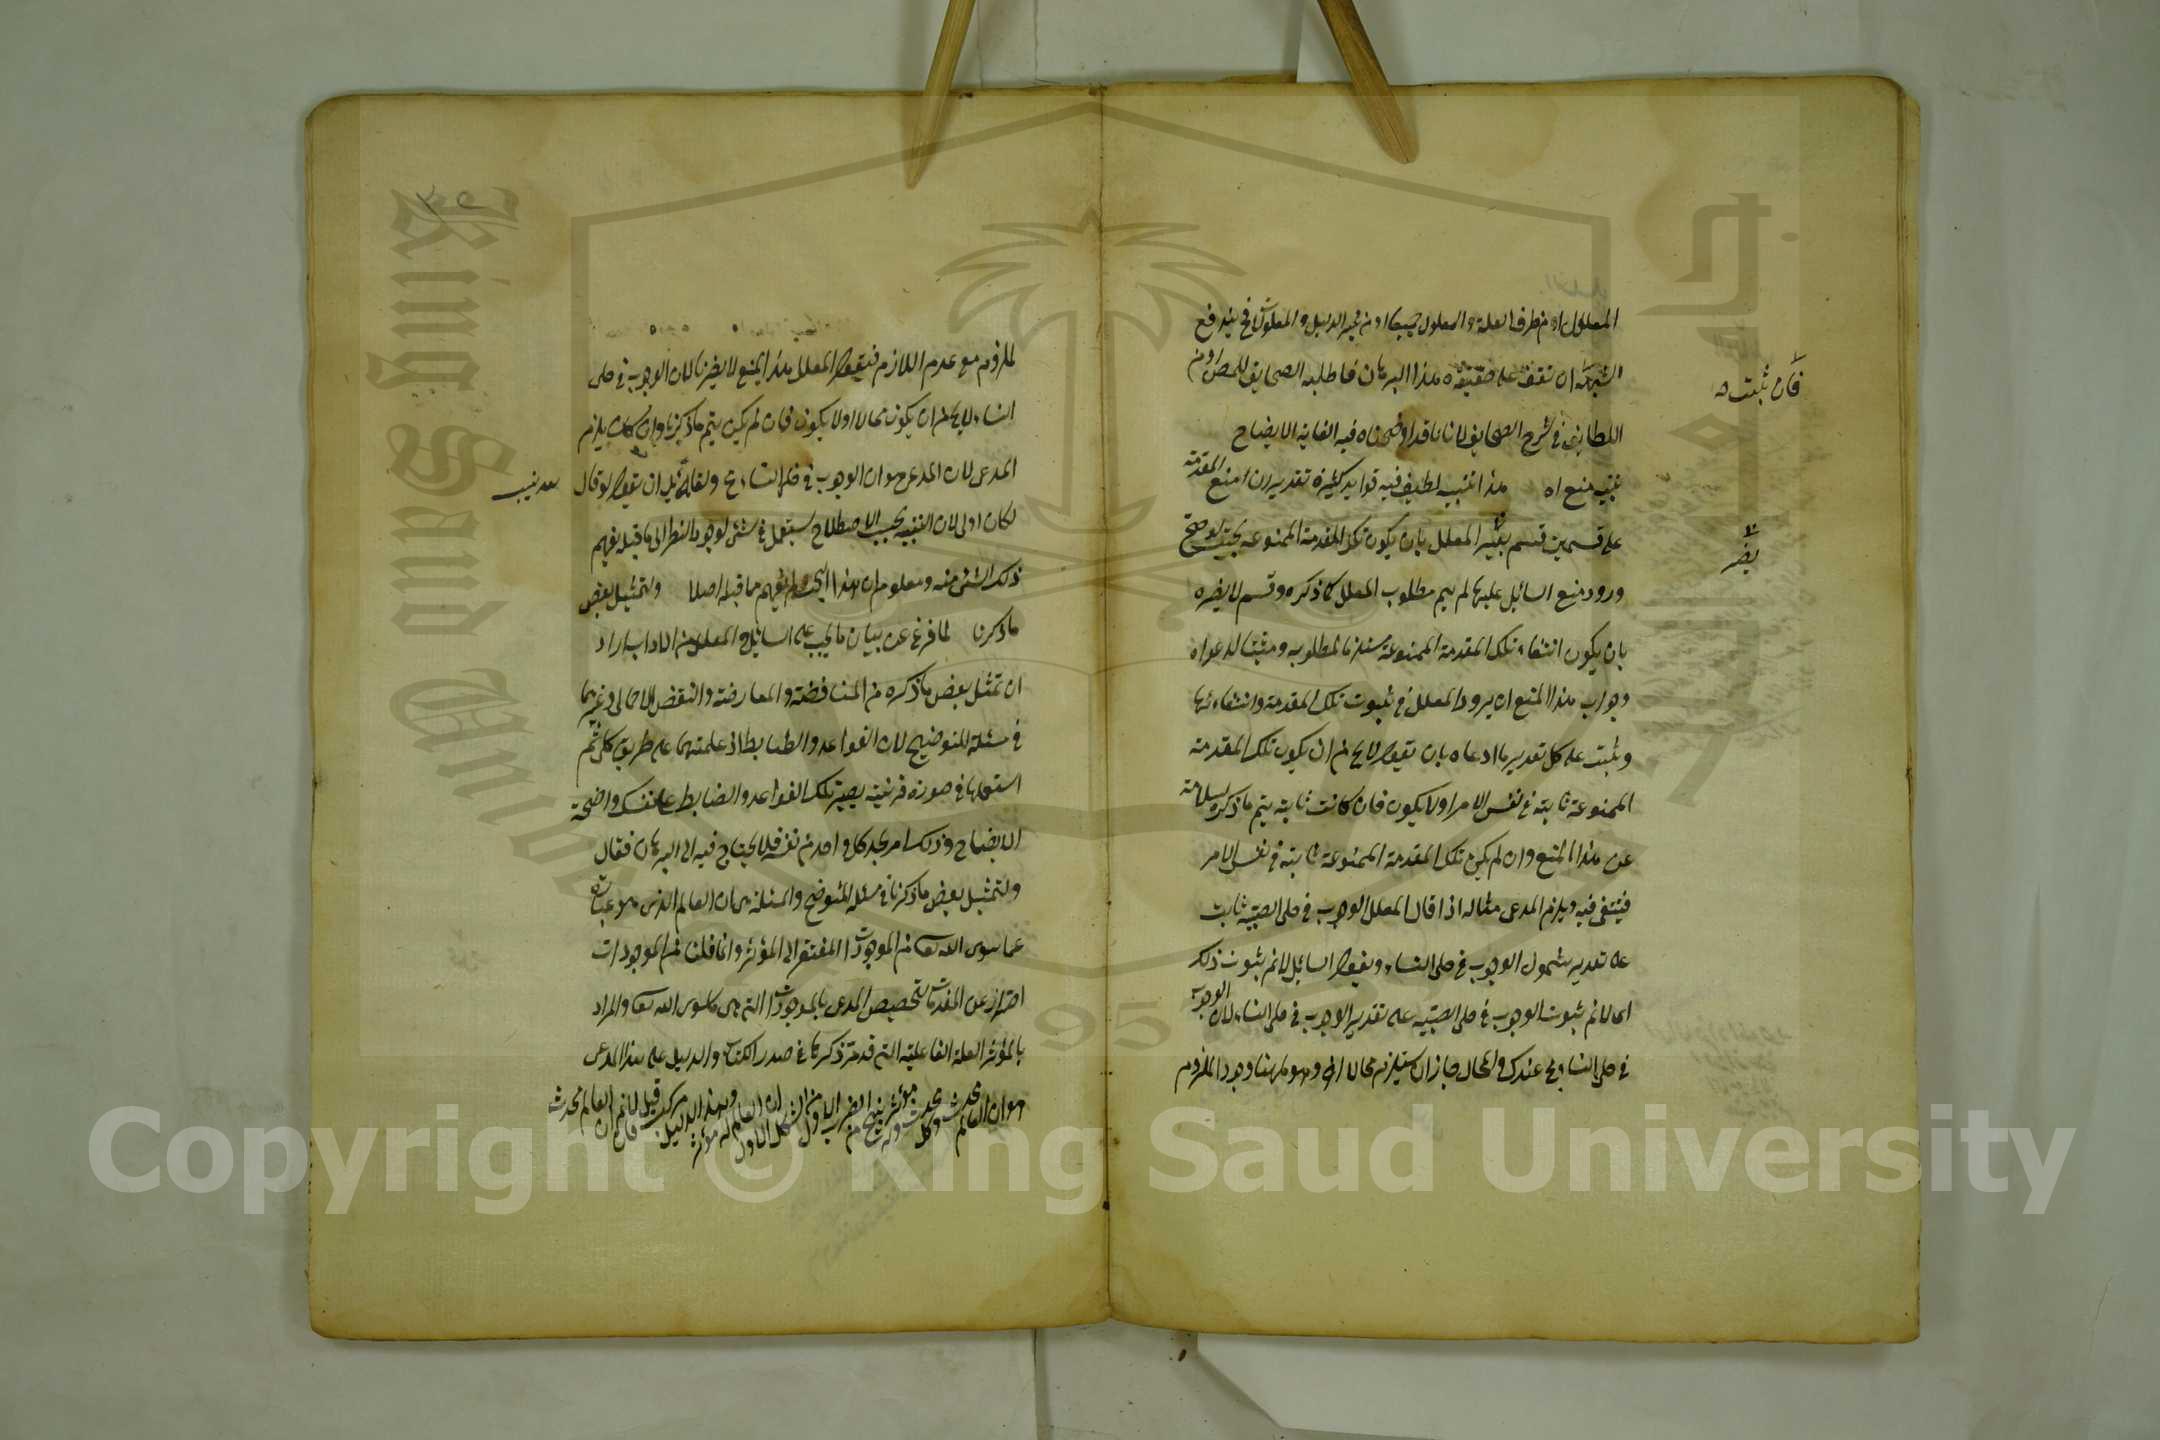 المعلول او من طرف العلة والمعلول جميعا او من غير الدليل والمعلول فح يندفع
الشبهة ان تقف على حقيقة هذا البرهان فاطلبه الصحايف للمص او من
اللطايف في شرح الصحايف لانا قد اوضحناه فيه الغاية الايضاح
تنبيه منع اه هذا تنبيه لطيف فيه فوايد كثيرة تقديره ان منع المقدمة
على قسمين قسم يضر المعلل بان يكون تلك المقدمة الممنوعة بحيث لو صح
ورود منع السائل عليها لم يتم مطلوب المعلل كما ذكره وقسم لا يضره
بان يكون انتفاء تلك المقدمة الممنوعة مستلزما لمطلوبه ومثبتا لدعواه
وجواب هذا المنع ان يردد المعلل في ثبوت تلك المقدمة وانتفاءها
ويثبت على كل تقدير ما ادعاه بان يقول لا يخ من ان يكون تلك المقدمة
الممنوعة ثابتة في نفس الامر اولا يكون فان كانت ثابتة يتم ما ذكره لسلامته
عن هذا المنع وان لم يكن تلك المقدمة الممنوعة ثابتة في نفس الامر
فينتفى فيه ويلزم المدعى مثاله اذا قال المعلل الوجوب في حلى الصبية ثابت
على تقدير شمول الوجوب في حلى النساء ويقول السائل لانم ثبوت ذلك
اى لانم ثبوت الوجوب في حلى الصبية على تقدير الوجوب في حلى النساء لان الوجوب
في حلى النساء مح عندك والمحال جاز ان يستلزم محالا اخر وهو ههنا وجود الملزوم
فان ثبتت
يضر
٣٥
الملزوم مع عدم اللازم فيقول المعلل هذا المنع لا يضرنا لان الوجوب في حلى
النساء لا يخ من ان يكون محالا اولا يكون فان لم يكن يتم ما ذكرنا وان كان يلزم
المدعى لان المدعى هو ان الوجوب في حلى النساء مح ولقائل ان يقول لو قال
لكان اولى لان التنبيه بحسب الاصطلاح يستعمل في شئ لو جود النظر الى ما قبله يفهم
ذلك الشئ منه ومعلوم ان هذا البحث لم يفهم مما قبله اصلا ولتمثيل بعض
ما ذكرنا لما فرغ عن بيان ما يجب على السائل والمعلل من الاداب اراد
ان تمثيل بعض ما ذكره من المناقضة والمعارضة والنقض الاجمالى وغيرها
في مسئلة للتوضيح لان القواعد والضابط اذا علمتها على طريق كلى ثم
استعملها في صورة فرعية يصير تلك القواعد والضابط على نفسك واضحة
الايضاح وذلك امر يجد كل واحد من نفسه فلا يحتاج فيه الى البرهان فقال
ولتمثيل بعض ما ذكرنا في مسئلة للتوضيح والمسئلة هى ان العالم الذى هو عبارة
عما سوى الله تعالى من الموجودات المفتقر الى المؤثر وانما قلنا من الموجودات
احتراز عن المعدومات لتخصيص المدعى بالموجودات التى هى ما سوى الله تعالى والمراد
بالمؤثر العلة الفاعلية التى قد مر ذكرها في صدر الكتاب والدليل على هذا المدعى
هو ان العالم محدث وكل محدث وله مؤثر ينتج من الضرب الاول من الشكل الاول ان العالم له مؤثر وهذا الدليل مركب فان قيل لانم ان العالم محدث